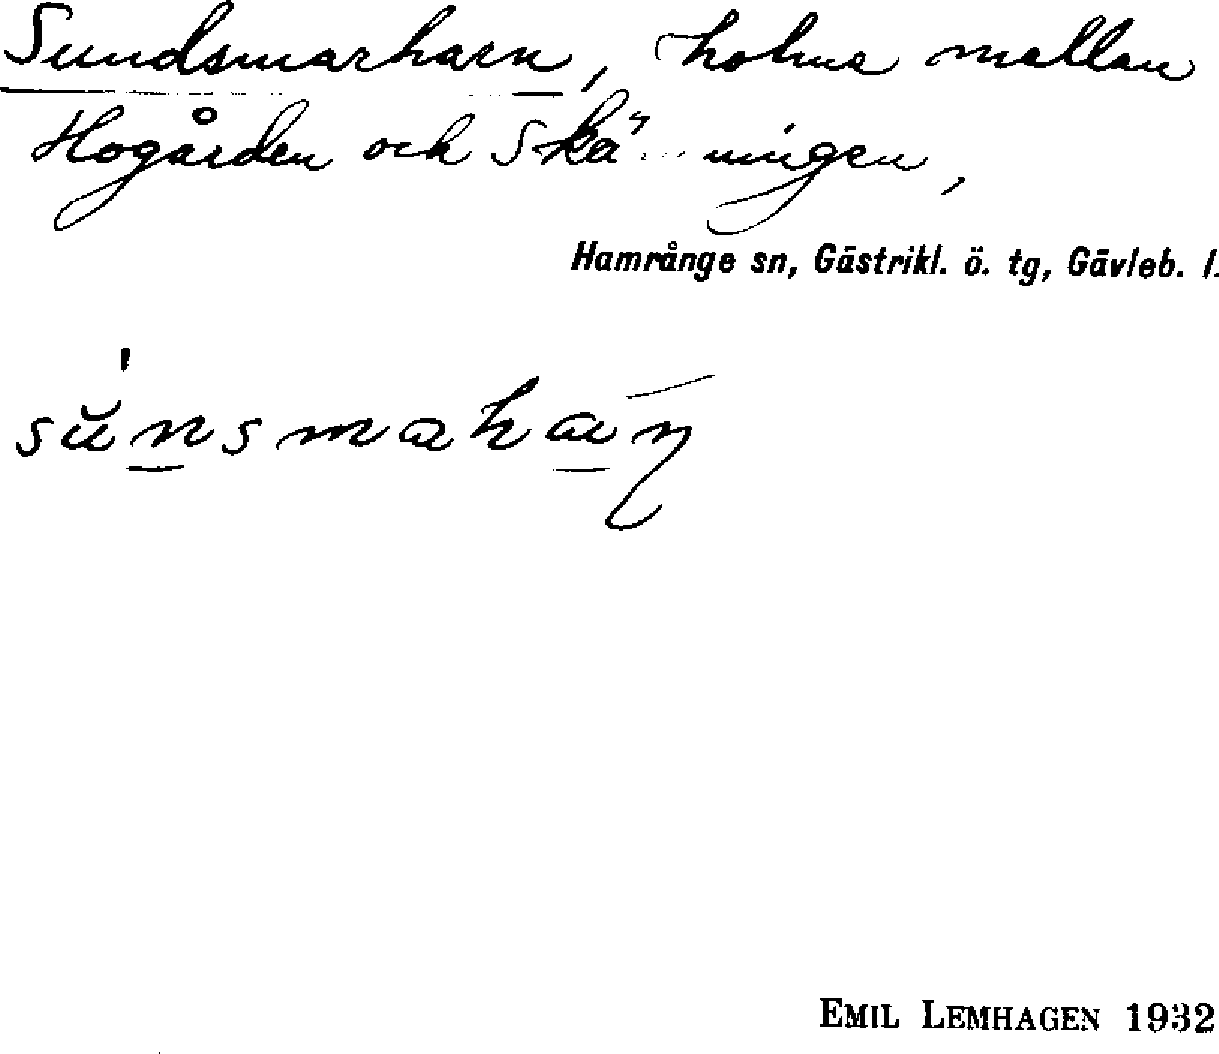 Sundsmarharn, holme mellan
Hogården och
Hamrånge sn, Gästrikl. ö. tg, Gävleb. l.
EMIL LEMHAGEN 1932